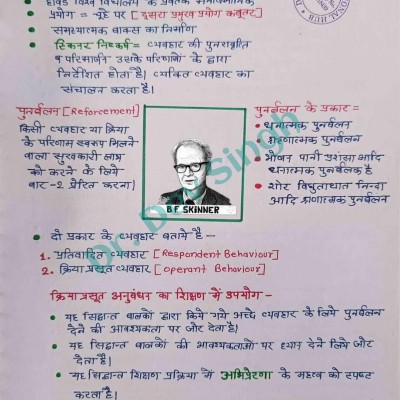 हार्वर्ड विश्व विद्यालय के प्रवर्तक मनोवैज्ञानिक
प्रयोग = चूहे पर [दूसरा प्रमुख प्रयोग कबूतर]
समस्यात्मक बाक्स का निर्माण
स्किनर निष्कर्ष = व्यवहार की पुनरावृत्ति
व परिमार्जन उसके परिणामों के द्वारा
निर्देशित होता है। व्यक्ति व्यवहार का
संचालन करता है।
पुनर्वलन [Reforcement]
किसी व्यवहार या क्रिया
के परिणाम स्वरूप मिलने
वाला सुखकारी लाभ
जो करने के लिये
बार-2 प्रेरित करना।
पुनर्वलन के प्रकार =
धनात्मक पुनर्वलन
ऋणात्मक पुनर्वलन
भोजन पानी प्रशंसा आदि
धनात्मक पुनर्वलक है
शोर विद्युताघात निन्दा
आदि ऋणात्मक पुनर्वलन
B F SKINNER
दो प्रकार के व्यवहार बताये है --
1. प्रतिवादित व्यवहार [Respondent Behaviour]
2. क्रिया प्रसूत व्यवहार [Operant Behaviour]
क्रिया प्रसूत अनुबंधन का शिक्षण में उपयोग -
यह सिद्धान्त बालकों द्वारा किये गये अच्छे व्यवहार के लिये पुनर्वलन
देने की आवश्यकता पर जोर देता है।
यह सिद्धान्त बालकों की आवश्यकताओं पर ध्यान देने लिये जोर
देता है।
यह सिद्धान्त शिक्षण प्रक्रिया में अभिप्रेरणा के महत्व को स्पष्ट
करता है।